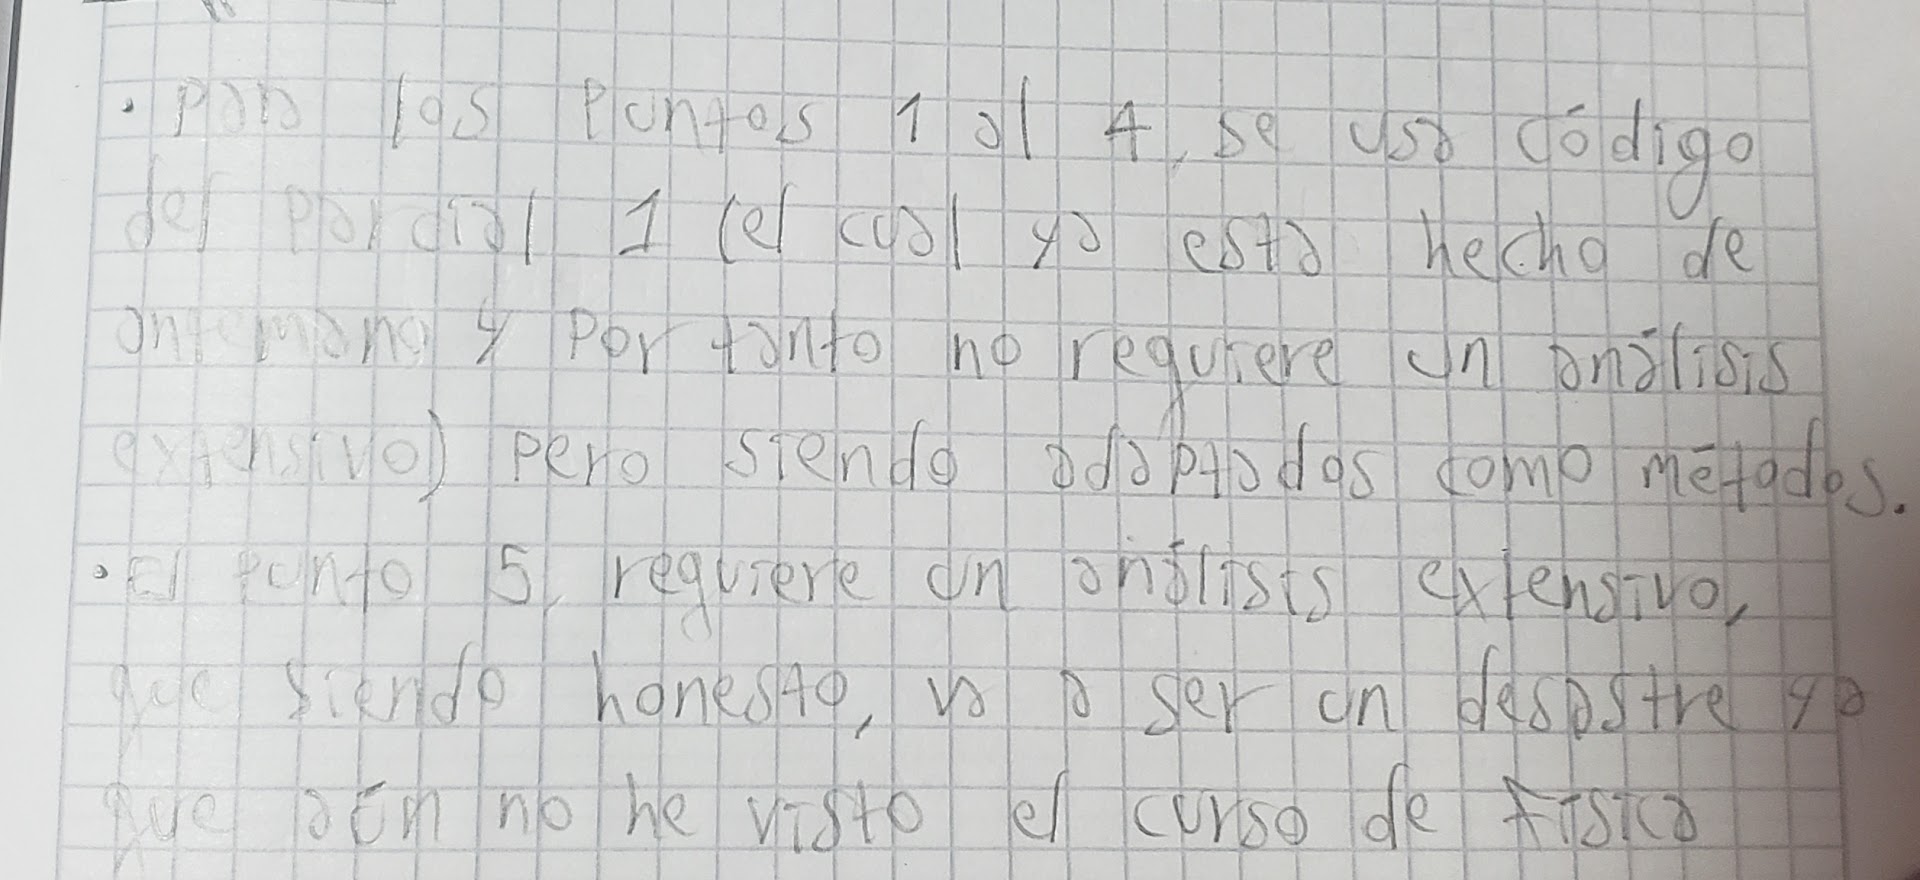 • Para los puntos 1 al 4, se usa código
del parcial 1 (el cual ya esta hecho de
antemano y por tanto no requiere un análisis
extensivo) pero siendo adaptados como métodos.
• El punto 5, requiere un análisis extensivo,
que siendo honesto, va a ser un desastre ya
que aún no he visto el curso de física